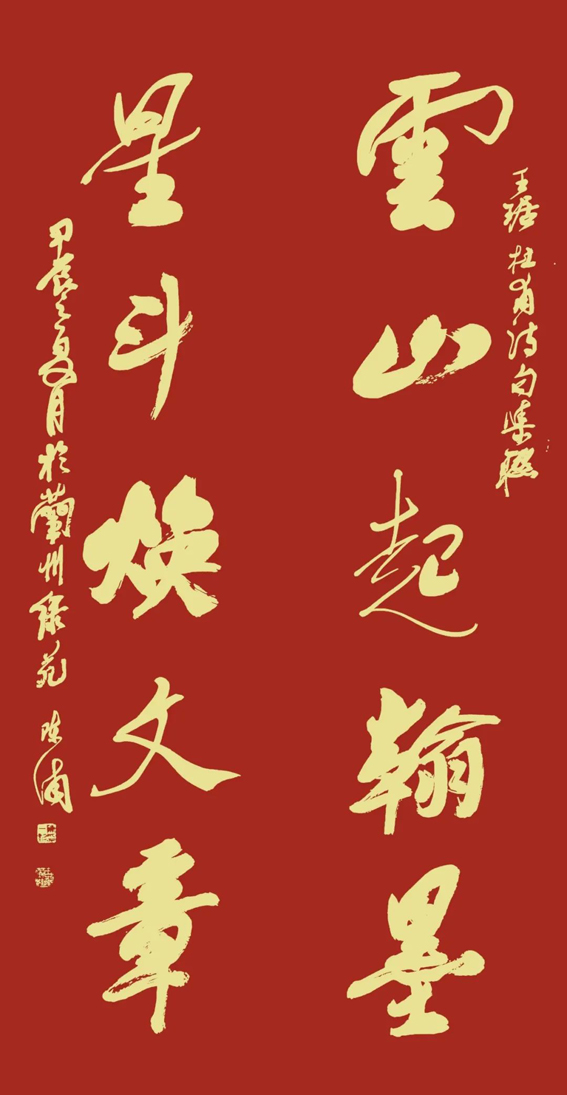 王琚杜甫诗句集聯
雲山起翰墨
星斗焕文章
甲辰之夏月於蘭州綠苑 陈